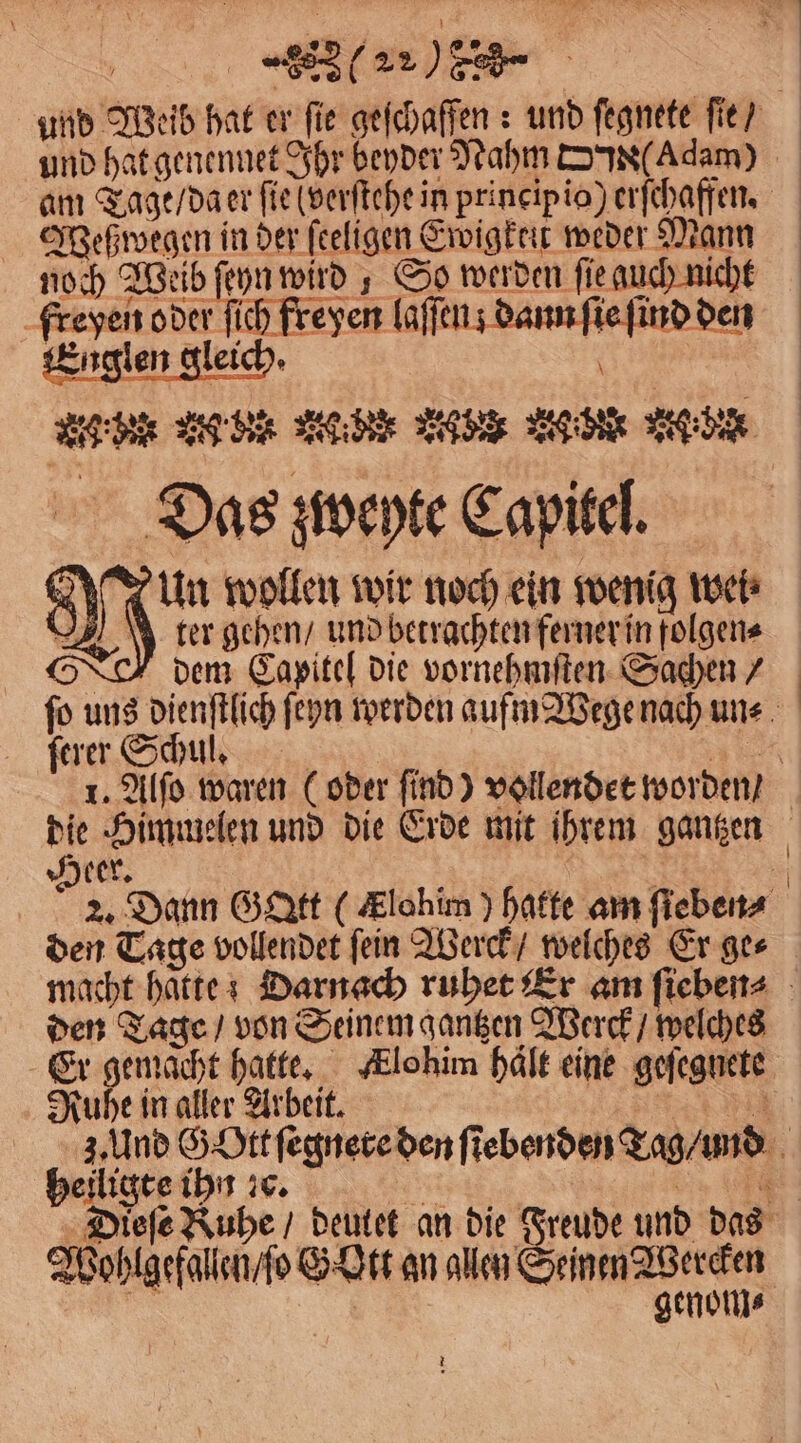 (22)
und Weib hat er ſie geſchaffen : und ſegnete ſie /
und hat genennet Ihr beyder Nahm אדם (Adam)
am Tage / da er ſie (verſtehe in principio) erſchaffen.
Weßwegen in der ſeeligen Ewigkeit weder Mann
noch Weib ſeyn wird ; So werden ſie auch nicht
freyen oder ſich freyen laſſen; dann ſie ſind den
Englen gleich.
Das zweyte Capitel.
NUn wollen wir noch ein wenig wei⸗
ter gehen / und betrachten ferner in folgen⸗
dem Capitel die vornehmſten Sachen /
ſo uns dienſtlich ſeyn werden aufm Wege nach un⸗
ſerer Schul.
1. Alſo waren ( oder ſind ) vollendet worden /
die Himmelen und die Erde mit ihrem gantzen
Heer.
2. Dann GOtt ( Ælohim ) hatte am ſieben⸗
den Tage vollendet ſein Werck / welches Er ge⸗
macht hatte ; Darnach ruhet Er am ſieben⸗
den Tage / von Seinem gantzen Werck / welches
Er gemacht hatte. Ælohim hält eine geſegnete
Ruhe in aller Arbeit.
3. Und GOtt ſegnete den ſiebenden Tag / und
heiligte ihn ꝛc.
Dieſe Ruhe / deutet an die Freude und das
Wohlgefallen / ſo GOtt an allen Seinen Wercken
genom⸗